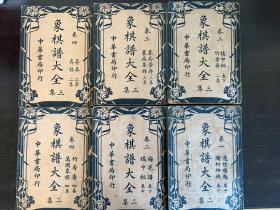 卷四
象棋譜大全
三集
中華書局印行
卷三
象棋譜大全
三集
中華書局印行
卷一
橘中秘
竹香齋
象棋譜大全
三集
中華書局印行
卷四
竹香齋
象棋譜大全
二集
中華書局印行
卷二
梅花譜
橘中秘
象棋譜大全
二集
中華書局印行
卷一
象棋譜大全
二集
中華書局印行